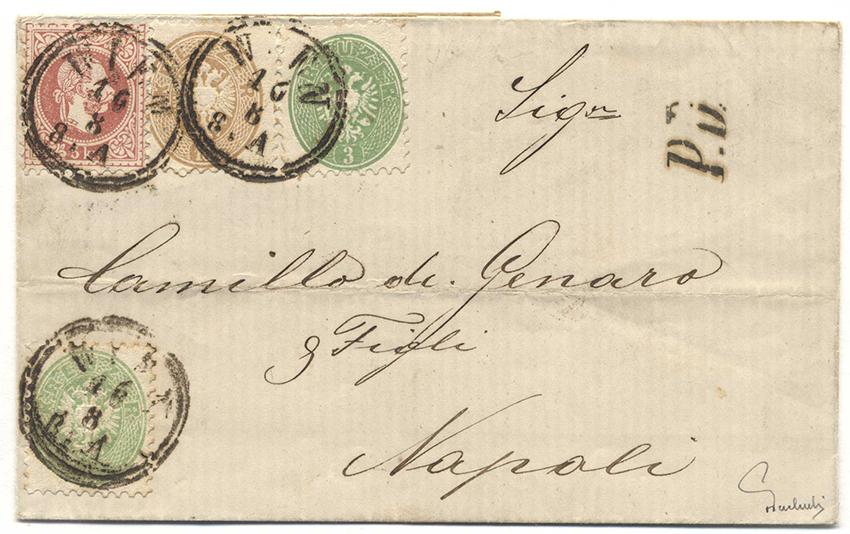 WIEN
16
8
8. A
WIEN
16
8
8. A
3
P.D.
Sigr
Camillo di Genaro
& Figli
Napoli
WIEN
16
8
8. A